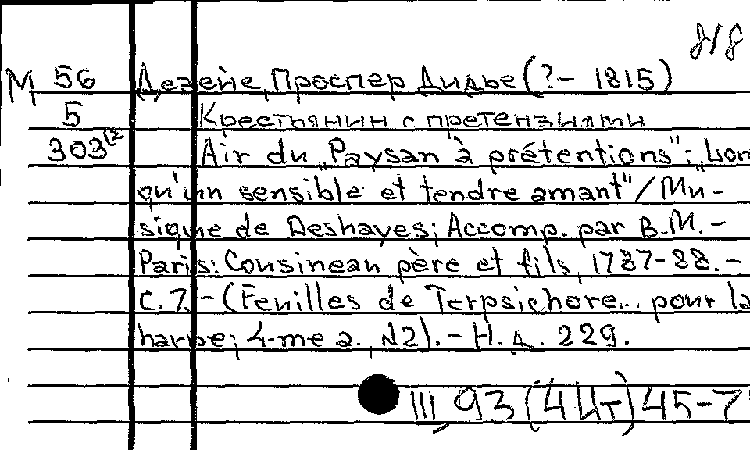 8/8
М 56 Дезеие, Проспер Дидье (?– 1815)
5 Крестьянин с претензиями
303 Air du „Paysan à prétentions"; „Lon
qu'un sensible et tendre amant"/Mu-
sique de Deshayes; Accomp. par B.M.–
Paris: Cousineau père et fils, 1787–88.–
C. 7. – (Feuilles de Terpsichore.. pour la
harpe; 4-me a., N2). – Н. д. 229.
III, 93 45–7